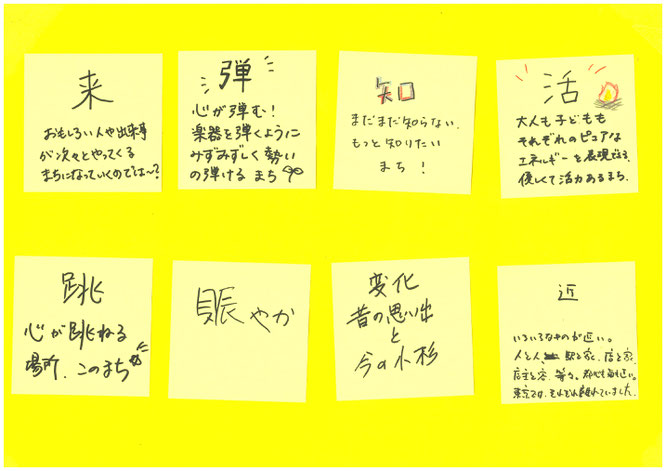 来
おもしろい人や出来事
が次々とやってくる
まちになっていくのでは〜?
弾
心が弾む!
楽器を弾くように
みずみずしく勢い
の弾ける まち
知
まだまだ知らない、
もっと知りたい
まち!
活
大人も子どもも
それぞれのピュアな
エネルギーを表現できる、
優しくて活力あるまち。
跳
心が跳ねる
場所、このまち
賑やか
変化
昔の思い出
と
今の小杉
近
いろいろなものが近い。
人と人、駅と家、店と家、
店主と客、等々。都心も近い。
東京では、それぞれ離れていました。